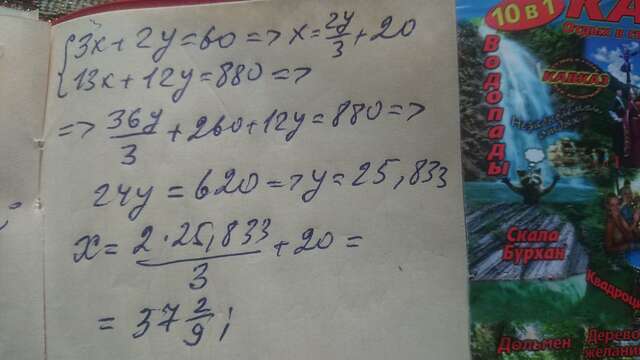 {3x+2y=60=>x=2y/3+20
{13x+12y=880=>
=>36y/3+260+12y=880=>
24y=620=>y=25,833
x=2·25,833/3+20=
=37 2/9;
10 в 1
КА
Отдых в
Водопады
КАВКАЗ
Скала
Бурхан
Квадроц
Дольмен
Дерево
желани